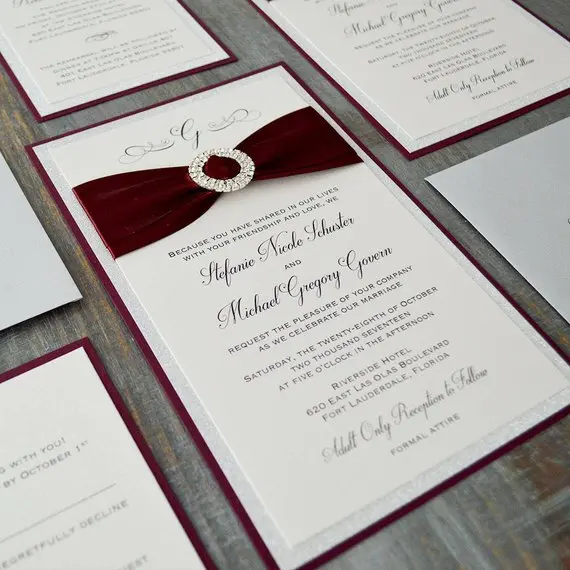 The rehearsal will be followed
620 East Las Olas Boulevard
Fort Lauderdale, Florida
G
Because you have shared in our lives
with your friendship and love, we
Stefanie Nicole Schuster
and
Michael Gregory Govern
request the pleasure of your company
as we celebrate our marriage.
Saturday, the twenty-eighth of October
two thousand seventeen
at five o'clock in the afternoon
Riverside Hotel
620 East Las Olas Boulevard
Fort Lauderdale, Florida
Adult Only Reception to Follow
formal attire
and
Michael Gregory Govern
request the pleasure of your company
as we celebrate our marriage.
Saturday, the twenty-eighth of October
two thousand seventeen
Riverside Hotel
620 East Las Olas Boulevard
Fort Lauderdale, Florida
Adult Only Reception to Follow
formal attire
with you!
by October 1st
regretfully decline